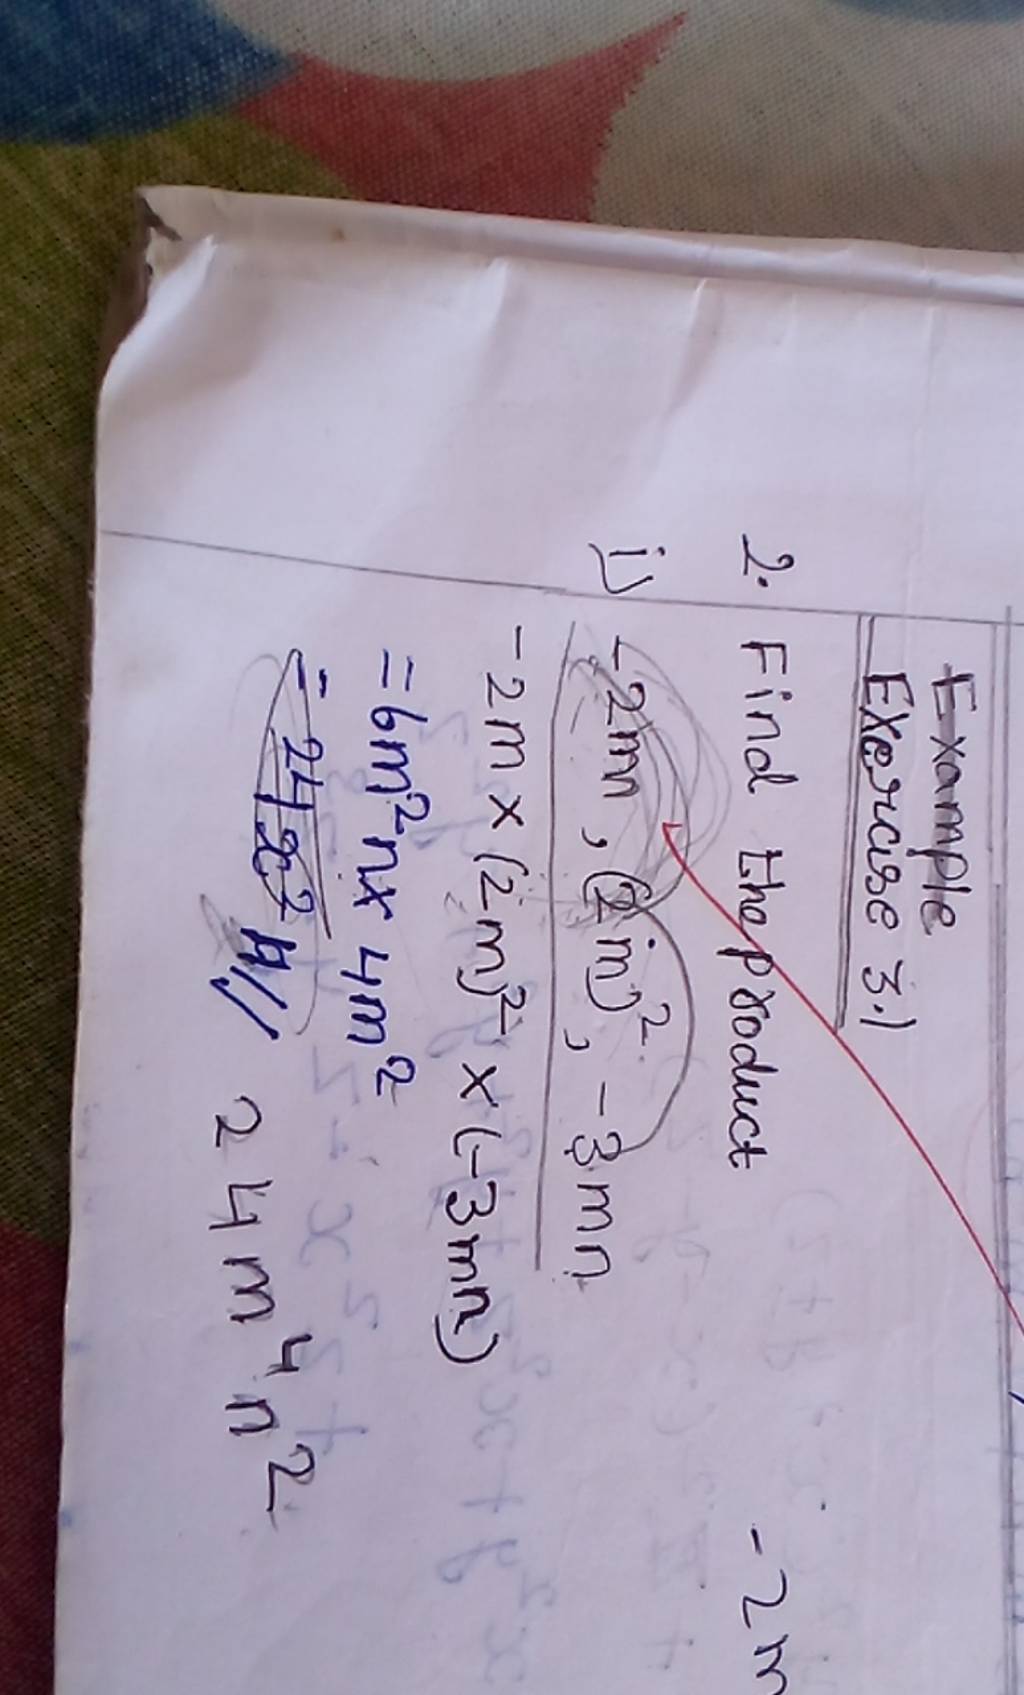 Example
Exercise 3.1
2. Find the product
-2m
i) -2mn, (2m)², -3mn
-2m × (2m)² × (-3mn)
= 6m²n × 4m²
= 24
24m⁴n²